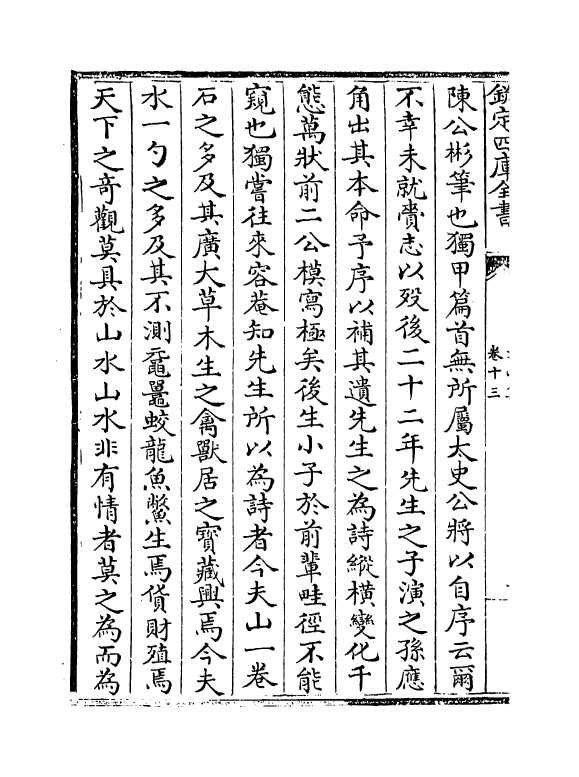 欽定四庫全書
卷十三
陳公彬筆也獨甲篇首無所屬太史公將以自序云爾
不幸未就賷志以歿後二十二年先生之子演之孫應
角出其本命予序以補其遺先生之為詩縱橫變化千
態萬狀前二公模寫極矣後生小子於前輩畦徑不能
窺也獨嘗往來容菴知先生所以為詩者今夫山一卷
石之多及其廣大草木生之禽獸居之寶藏興焉今夫
水一勺之多及其不測黿鼉蛟龍魚鱉生焉貨財殖焉
天下之奇觀莫具於山水山水非有情者莫之為而為